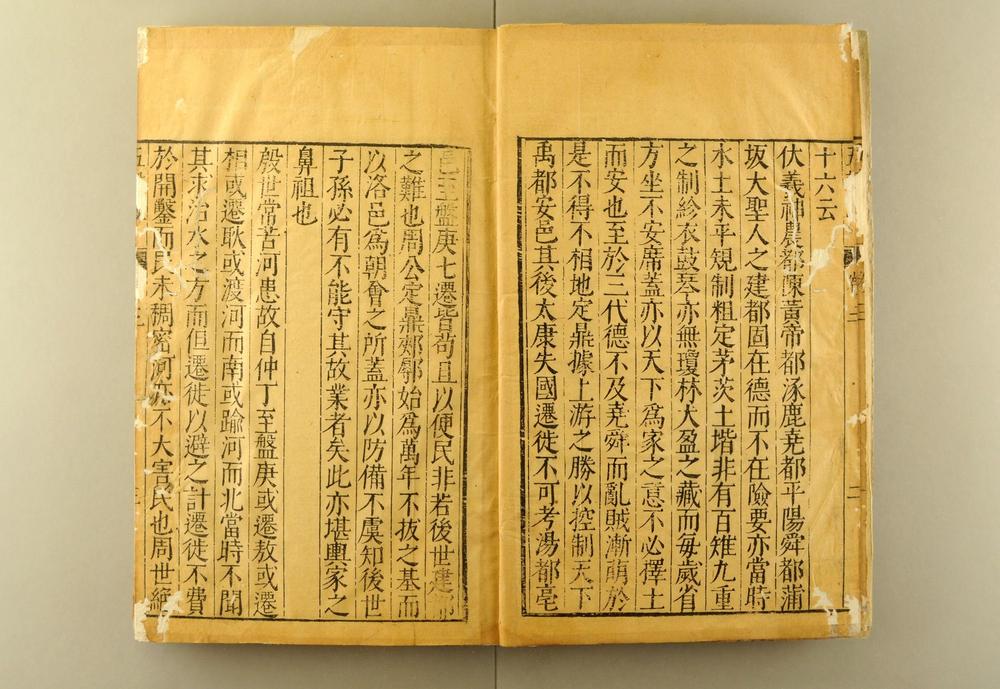 十六云
伏羲神農都陳黃帝都涿鹿堯都平陽舜都蒲
坂大聖人之建都固在德而不在險要亦當時
水土未平規制粗定茅茨土堦非有百雉九重
之制紾衣鼓琴亦無瓊林大盈之藏而每歲省
方坐不安席蓋亦以天下爲家之意不必擇土
而安也至於三代德不及堯舜而亂賊漸萌於
是不得不相地定鼎據上游之勝以控制天下
禹都安邑其後太康失國遷徙不可考湯都亳
至盤庚七遷皆苟且以便民非若後世建
之難也周公定鼎郟鄏始爲萬年不拔之基而
以洛邑爲朝會之所蓋亦以防備不虞知後世
子孫必有不能守其故業者矣此亦堪輿家之
鼻祖也
殷世常苦河患故自仲丁至盤庚或遷敖或遷
相或遷耿或渡河而南或踰河而北當時不聞
其求治水之方而但遷徙以避之計遷徙不費
於開鑿而民未稠密河亦不大害民也周世